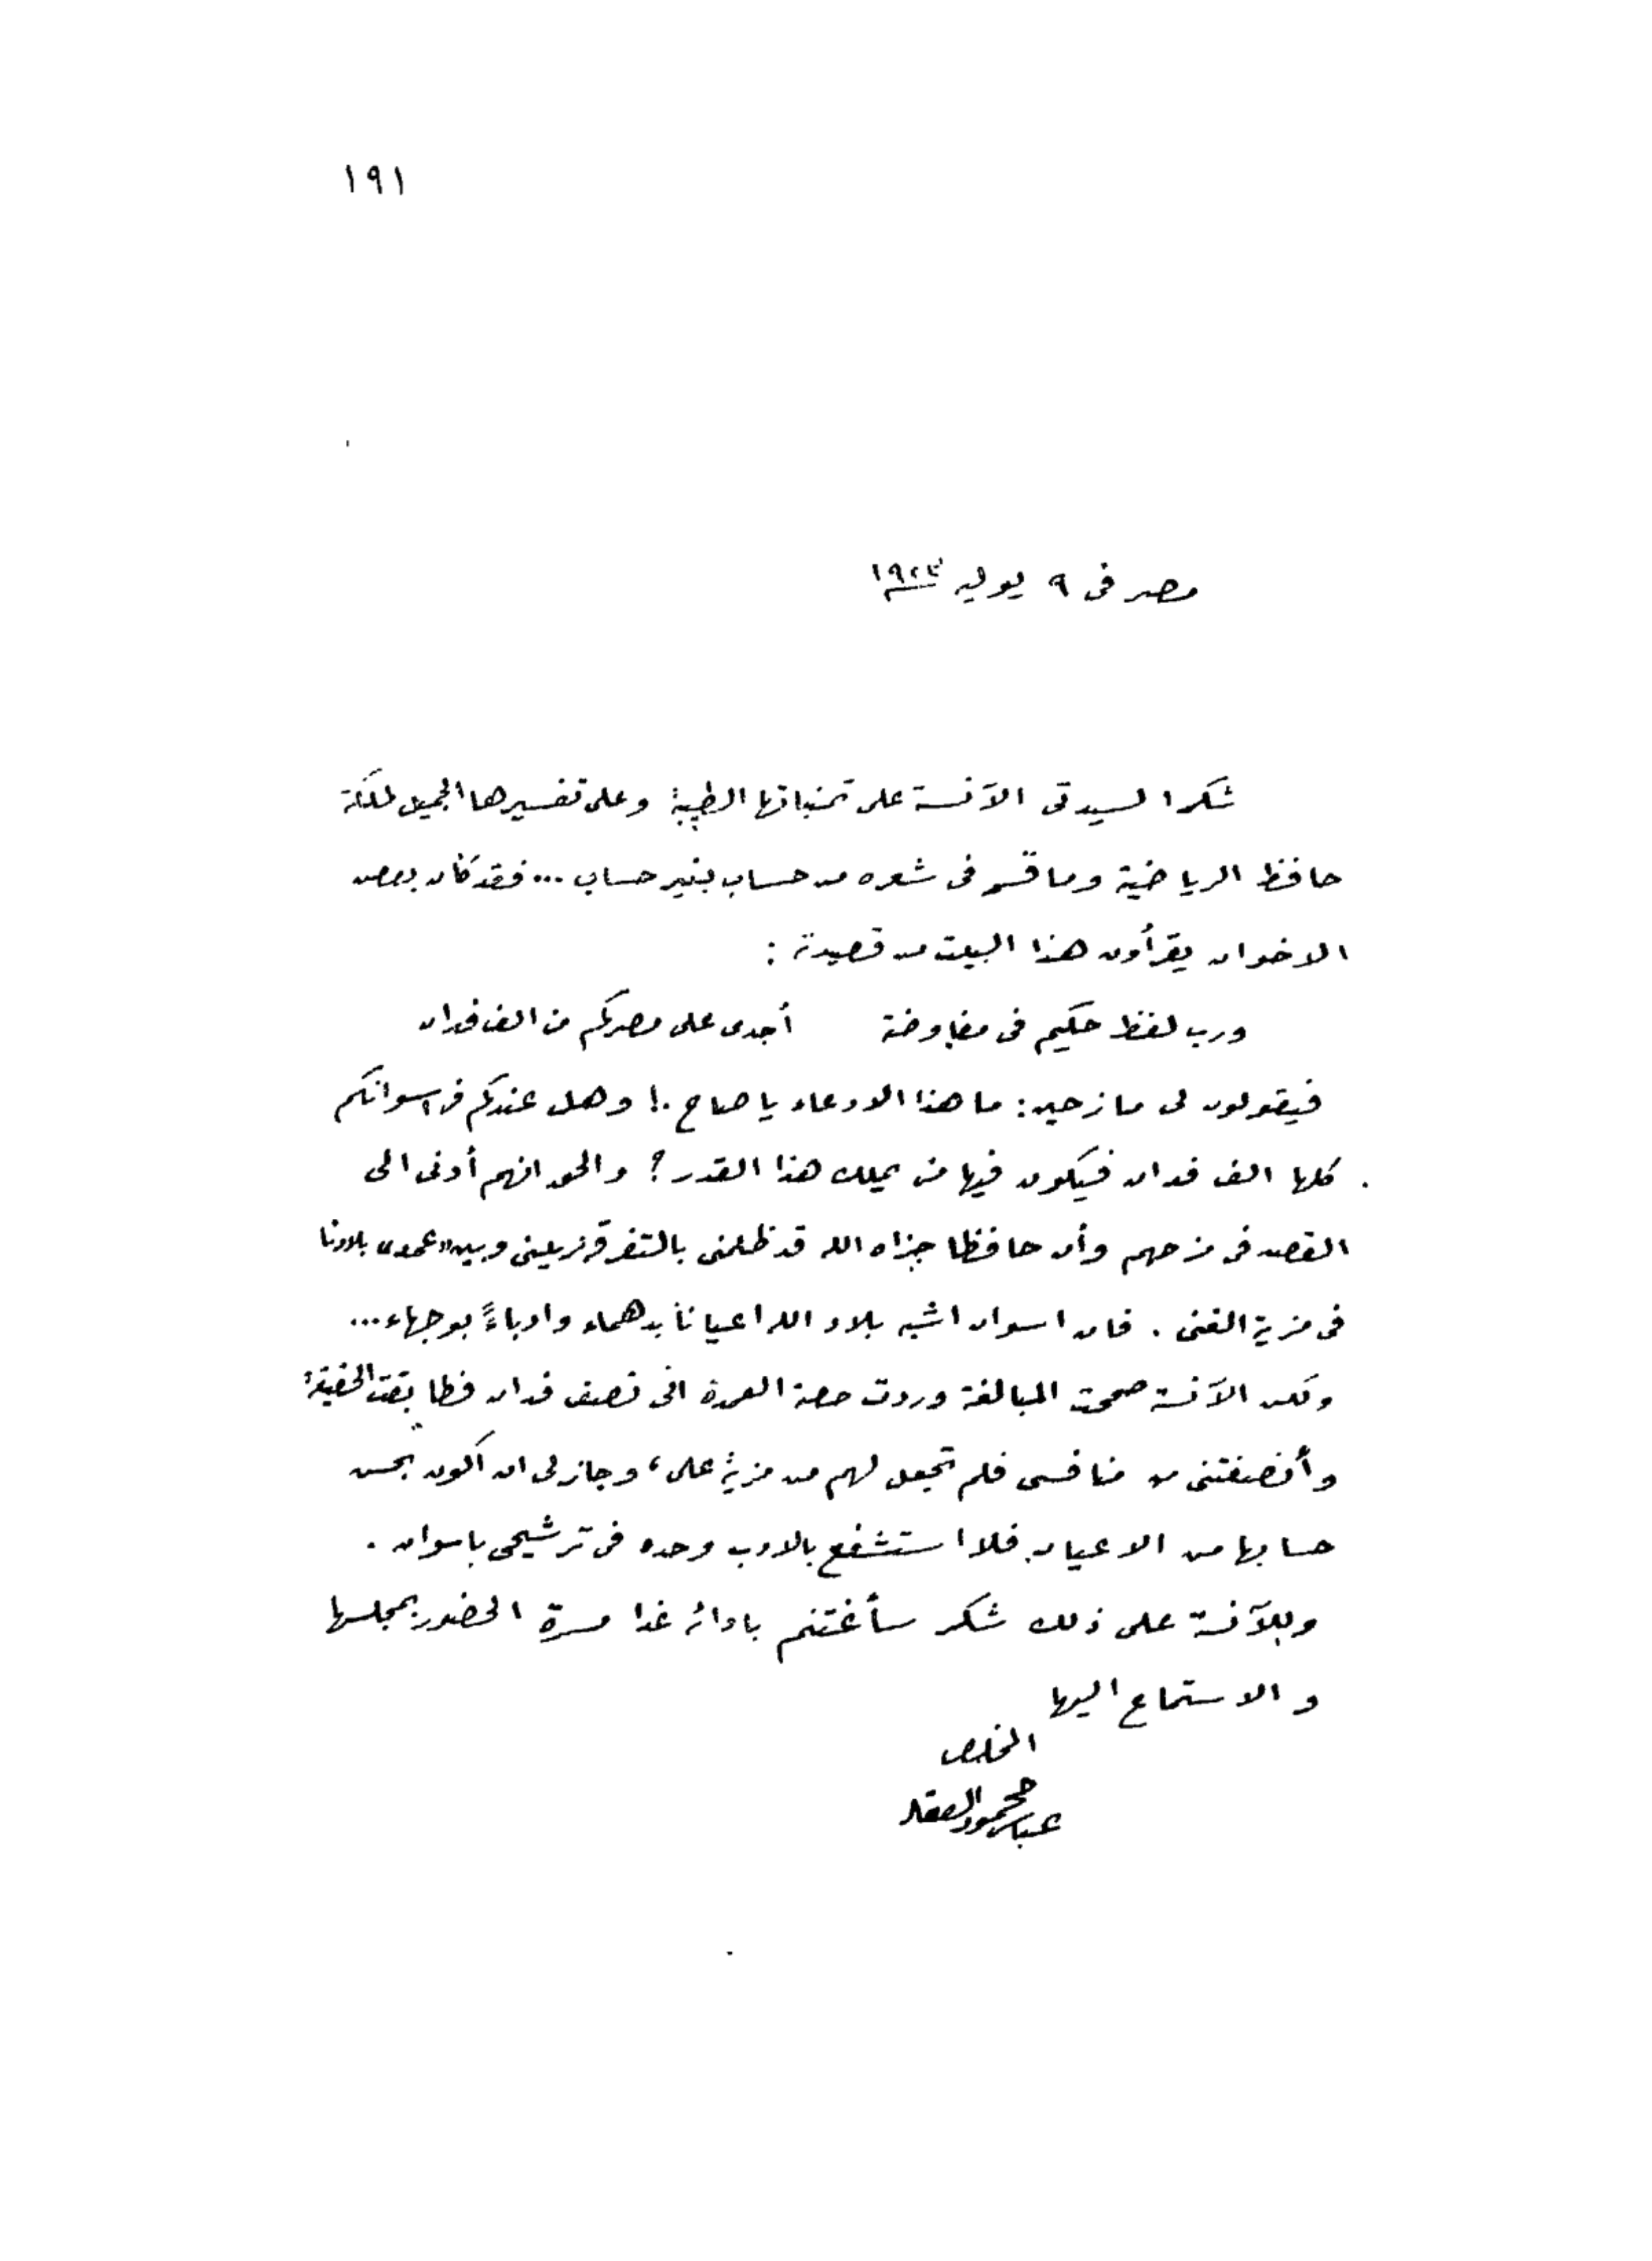 ١٩١
مصر فى ٩ يوليه
شكرا لسيدتى الآنسة على تمنياتها الطيبة وعلى تفسيرها الجميل لملكة
حافظ الرياضية وما قسم فى شعره من حساب بغير حساب ... فقد كان بعض
الاخوان يقرأون هذا البيت من قصيدته :
ورب لفظ حكيم فى مفاوضة أجدى على مصركم من الف فدان
فيقولون لى مازحين : ما هذا الادعاء يا صاح .! وهل عندكم فى اسوانكم
كلها الف فدان فيكون فيها من يملك هذا القدر ؟ والحق انهم أدنى الى
القصد فى مزحهم وأن حافظا جزاه الله قد ظلمنى بالتفرقة بينى وبين بلادنا
فى مزية الغنى . فان اسوان اشبه بلاد الله اعيانا بدهماء وادباءً بوجهاء ...
ولكن الآنسة صححت المبالغة وردت حصة العمدة الى نصف فدان فطابقت الحقيقة
وأنصفتنى من منافسى فلم تجعل لهم من مزية على ، وجاز لى ان اكون بحسن
حسابها من الاعيان فلا استشفع بالادب وحده فى ترشيحى باسوان .
وللآنسة على ذلك شكر سأغتنم بادائه غدا مسرة الحضور بمجلسها
والاستماع اليها
المخلص
عباس محمود العقاد